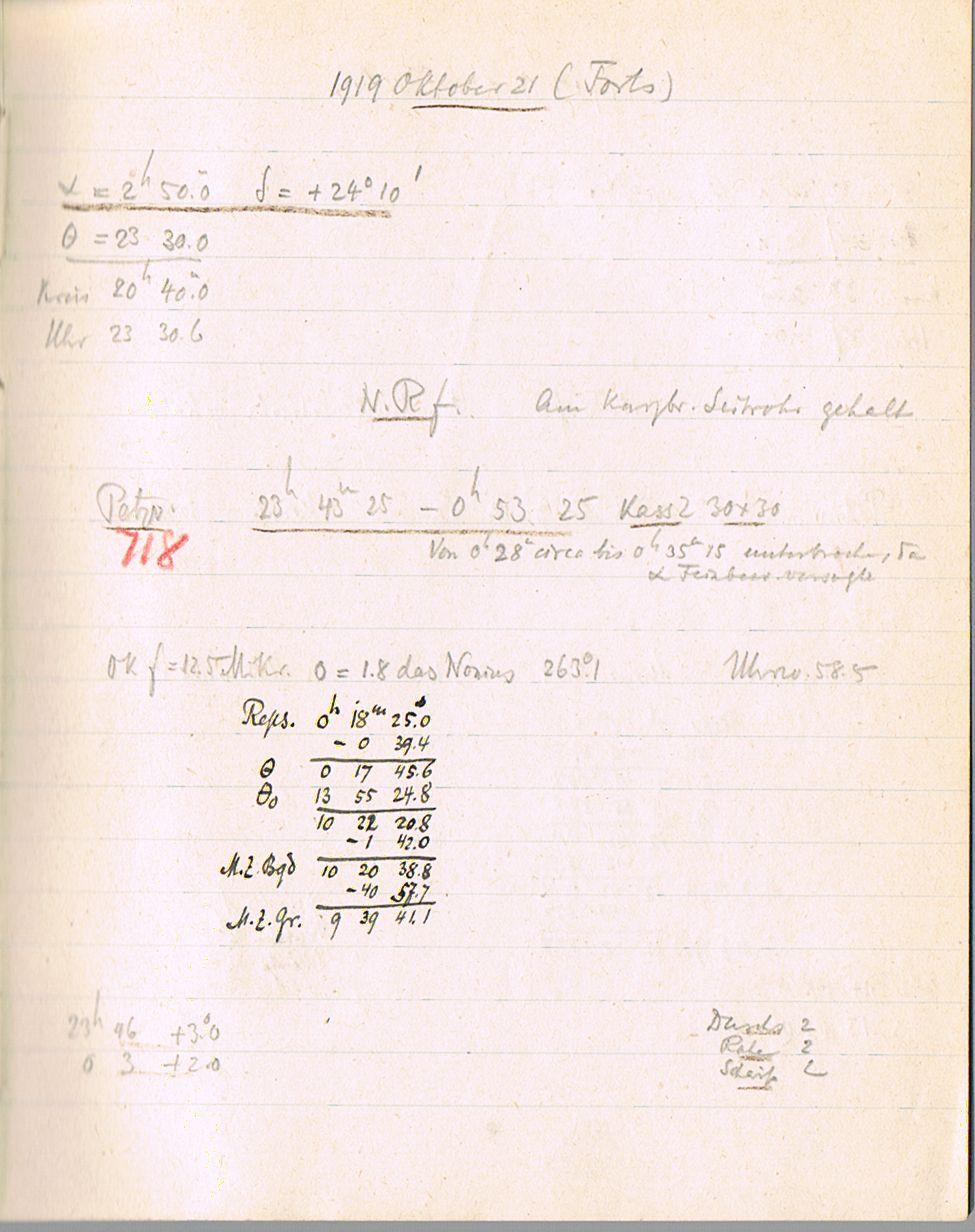 1919 Oktober 21 (Forts)
α = 2h 50.m0 δ = +24° 10'
θ = 23 30.0
Kreis 20h 40.m0
Uhr 23 30.6
N.R.f. Am Kurzbr. Leitrohr gehalt
Petzv. 23h 43m 25 – 0h 53 25 Kass 2 30x30
718
Von 0h 28m circa bis 0h 35m 15 unterbrochen, da
α Feinbew. versagte
OK f = 12.5 Mikr. 0 = 1.8 das Nonius 263°1 Uhrzo. 58.5
Reps. 0h 18m 25.s0
- 0 39.4
θ 0 17 45.6
θ0 13 55 24.8
10 22 20.8
-1 42.0
M.Z.Bgd 10 20 38.8
-40 57.7
M.Z.Gr. 9 39 41.1
23h 46 +3.°0
0 3 +2.0
Durchs 2
Ruhe 2
Schärfe 2